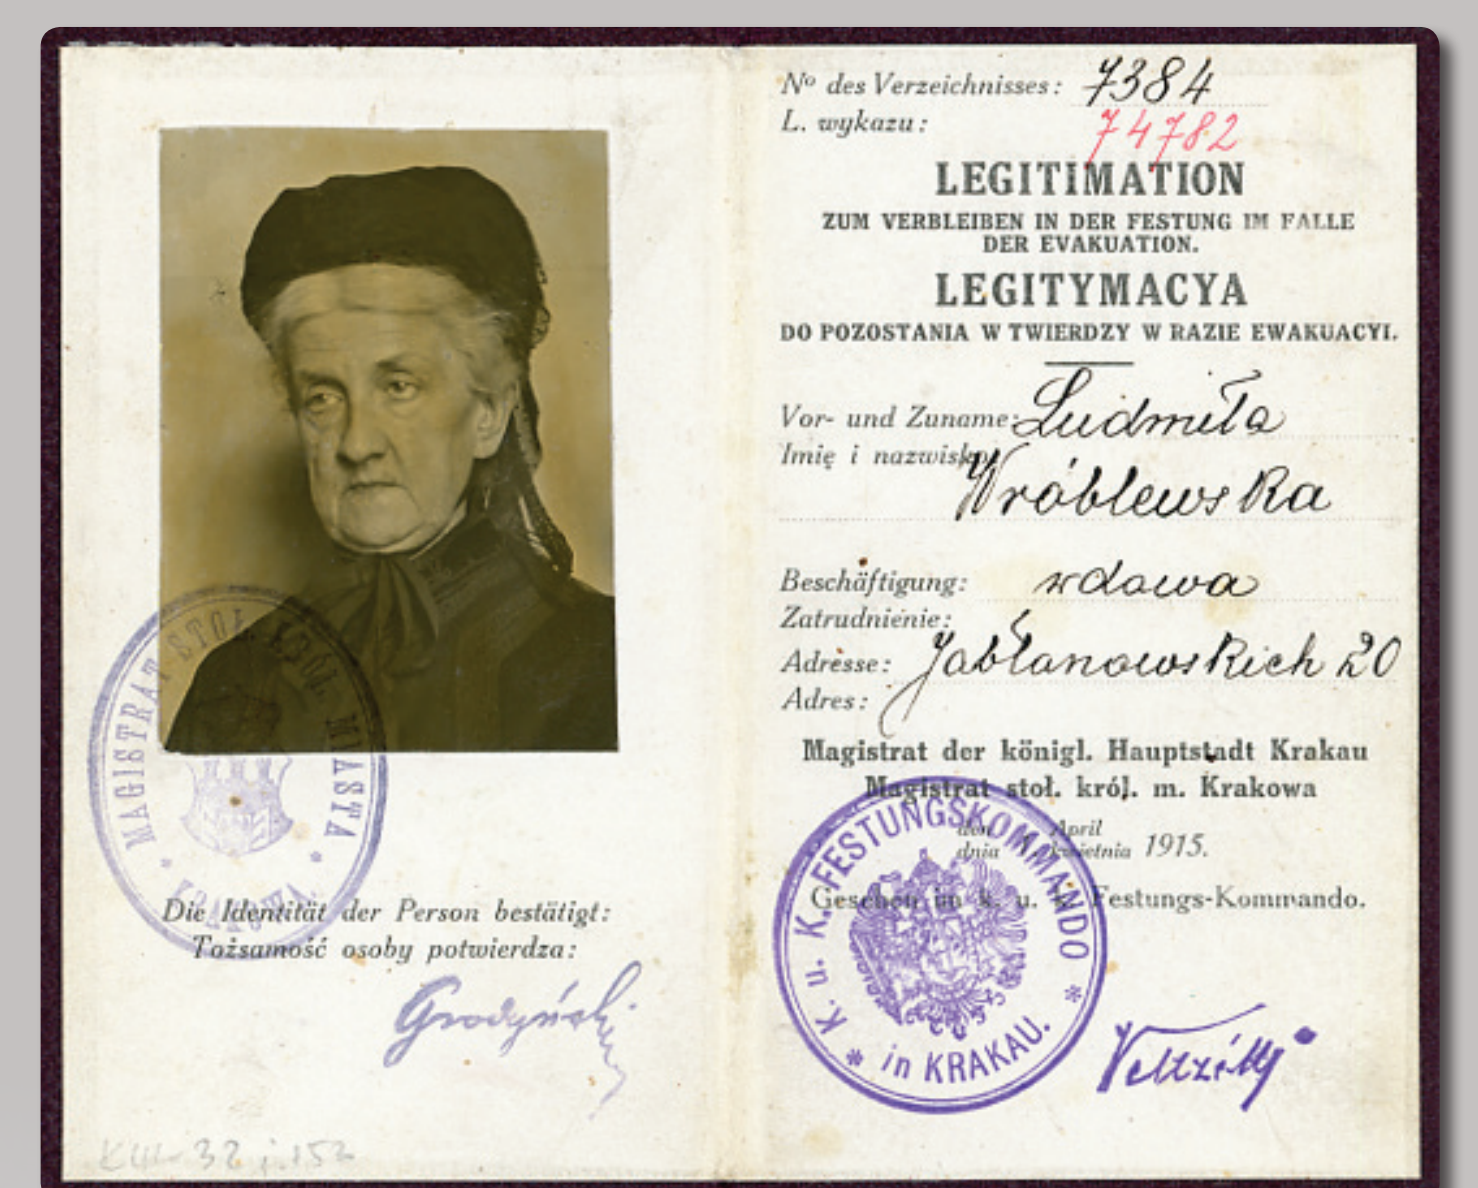 MAGISTRAT STOŁ. KRÓL. MIASTA
* KRAKOWA. *
Die Identität der Person bestätigt:
Tożsamość osoby potwierdza:
Grodyński
Nº des Verzeichnisses: 7384
L. wykazu: 74782
LEGITIMATION
ZUM VERBLEIBEN IN DER FESTUNG IM FALLE
DER EVAKUATION.
LEGITYMACYA
DO POZOSTANIA W TWIERDZY W RAZIE EWAKUACYI.
Vor- und Zuname: Ludmiła
Imię i nazwisko:
Wróblewska
Beschäftigung: wdowa
Zatrudnienie:
Adresse: Jabłonowskich 20
Adres:
Magistrat der königl. Hauptstadt Krakau
Magistrat stoł. król. m. Krakowa
den April
dnia kwietnia 1915.
Gesehen im k. u. k. Festungs-Kommando.
K. u. K. FESTUNGSKOMMANDO
* in KRAKAU. *